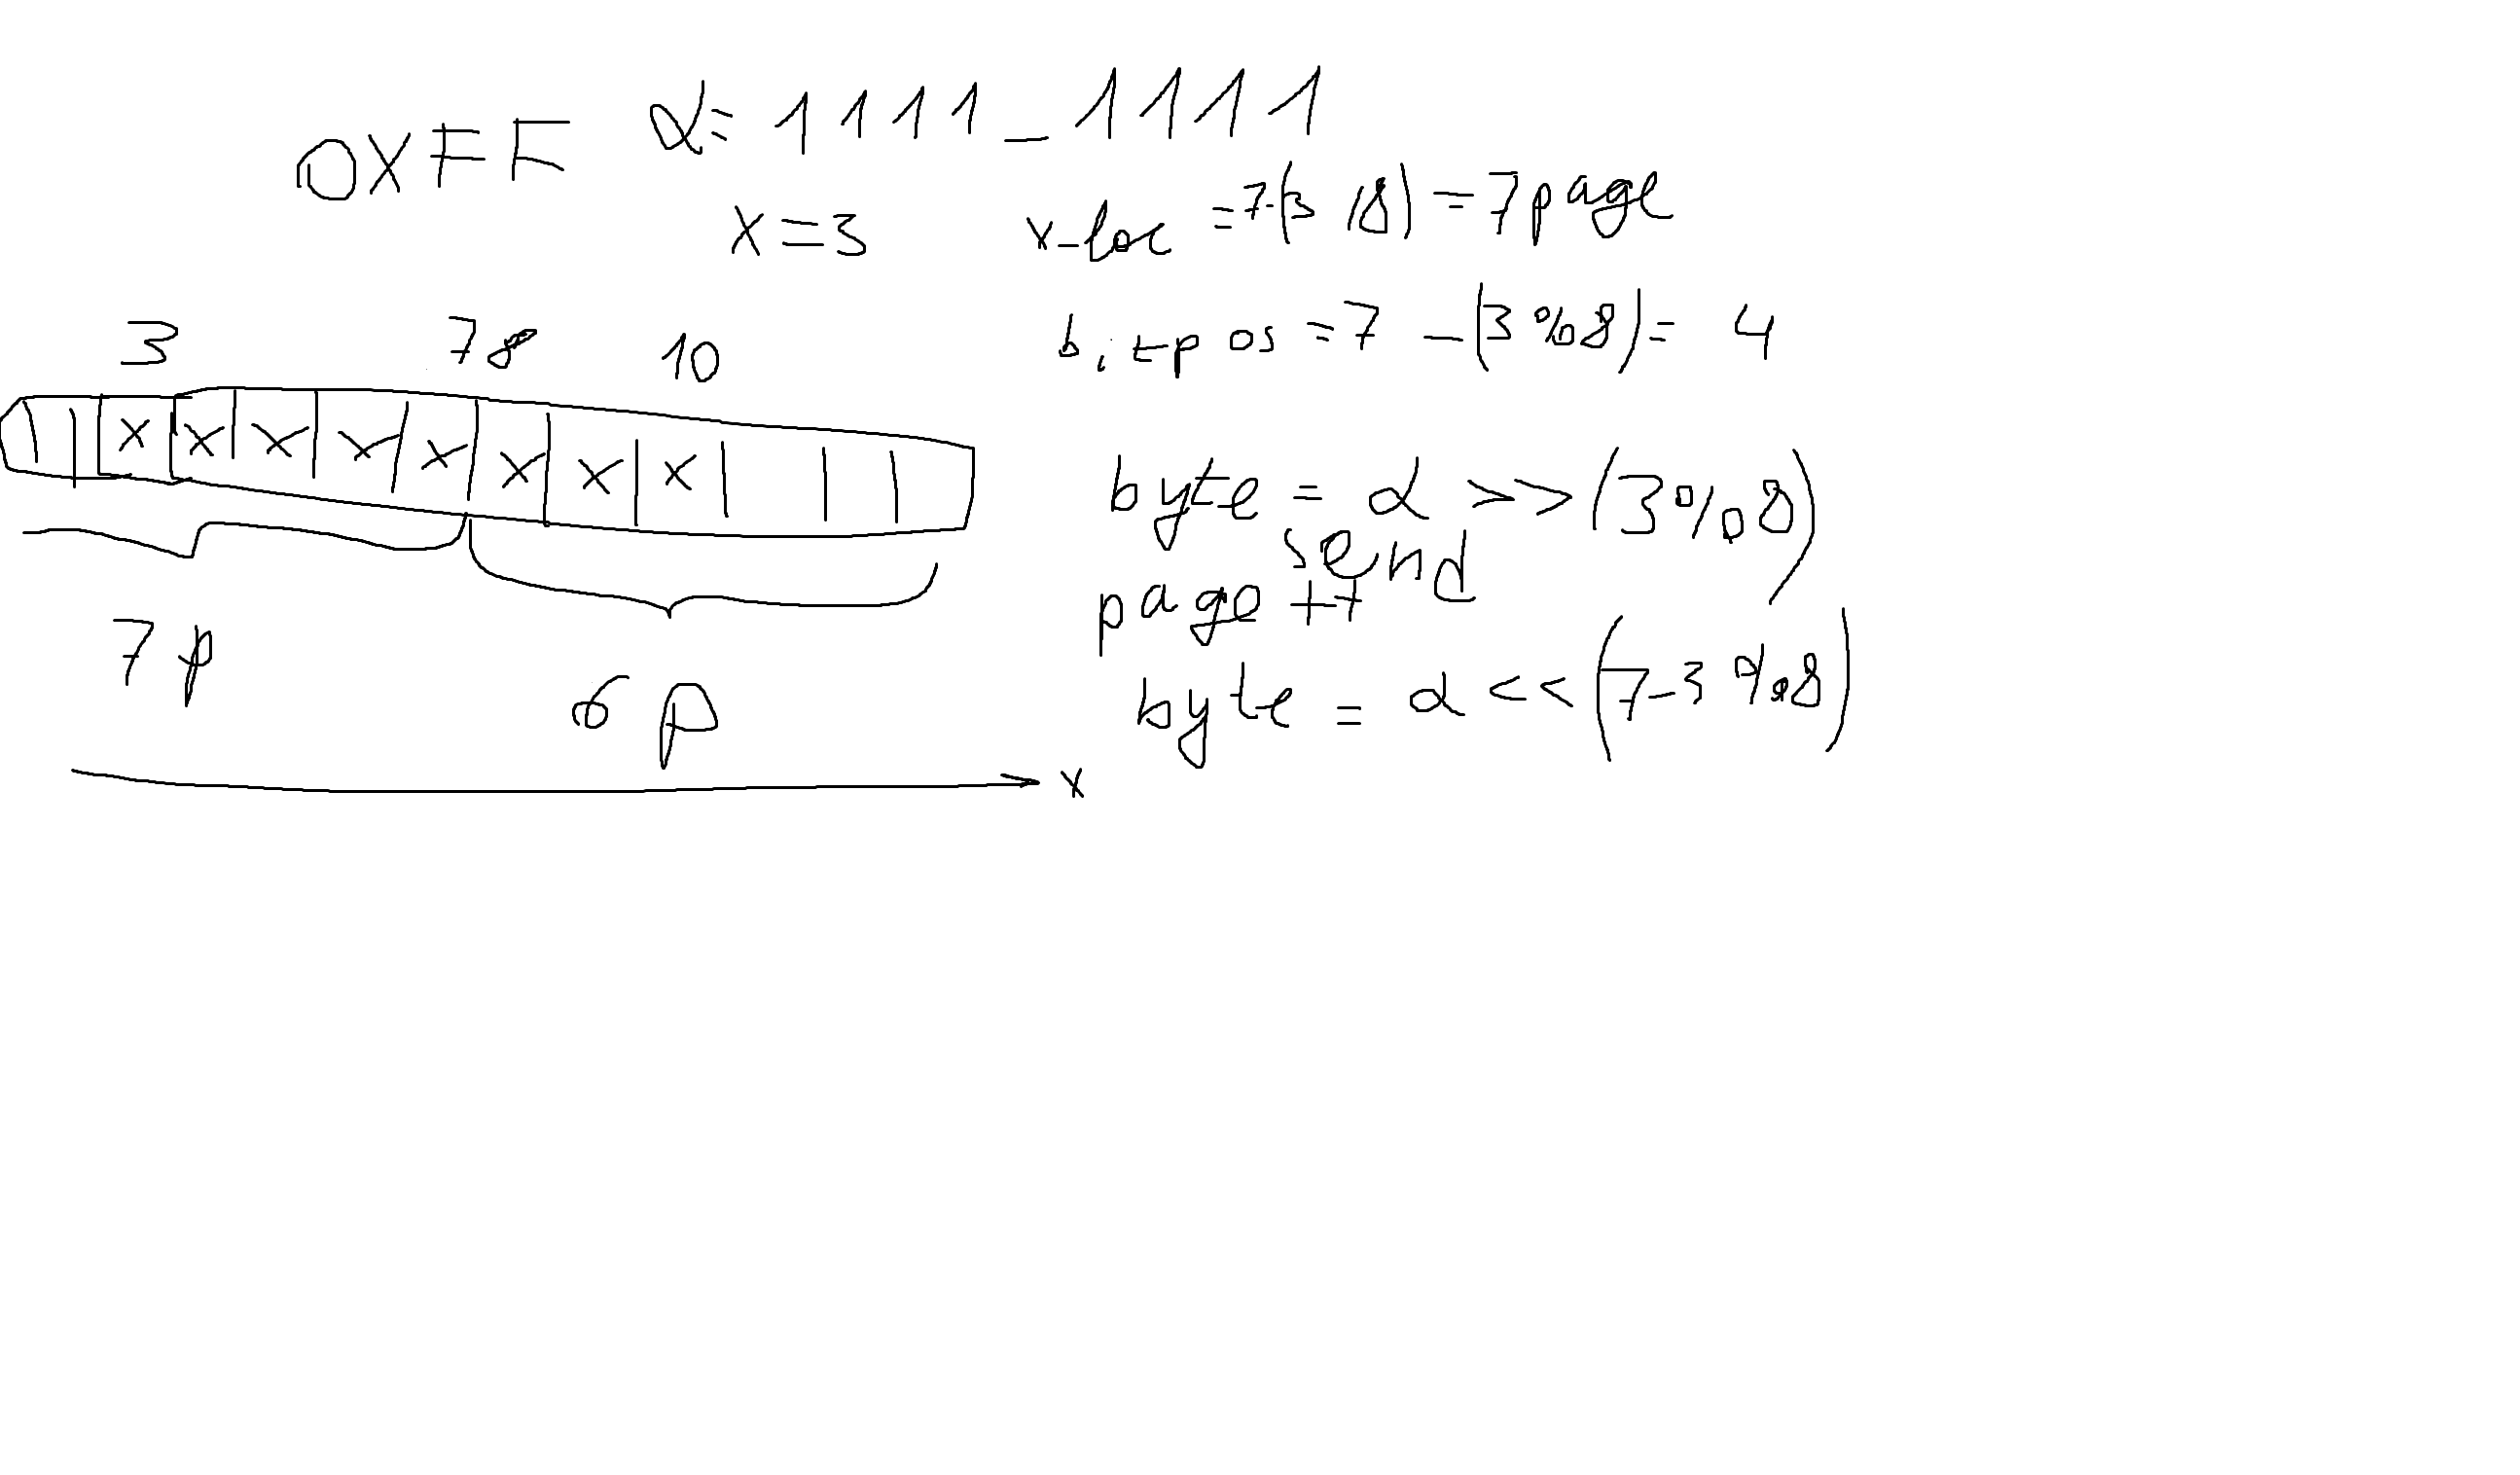 0XFF d = 1111_1111
x=3 x-loc = 7-(3/8) = 7page
bit-pos = 7 - (3%8) = 4
3 7 8 10
x x x x x x x x
byte = d >> (3%8)
send
page ++
byte = d << (7-3%8)
7p
6p
x